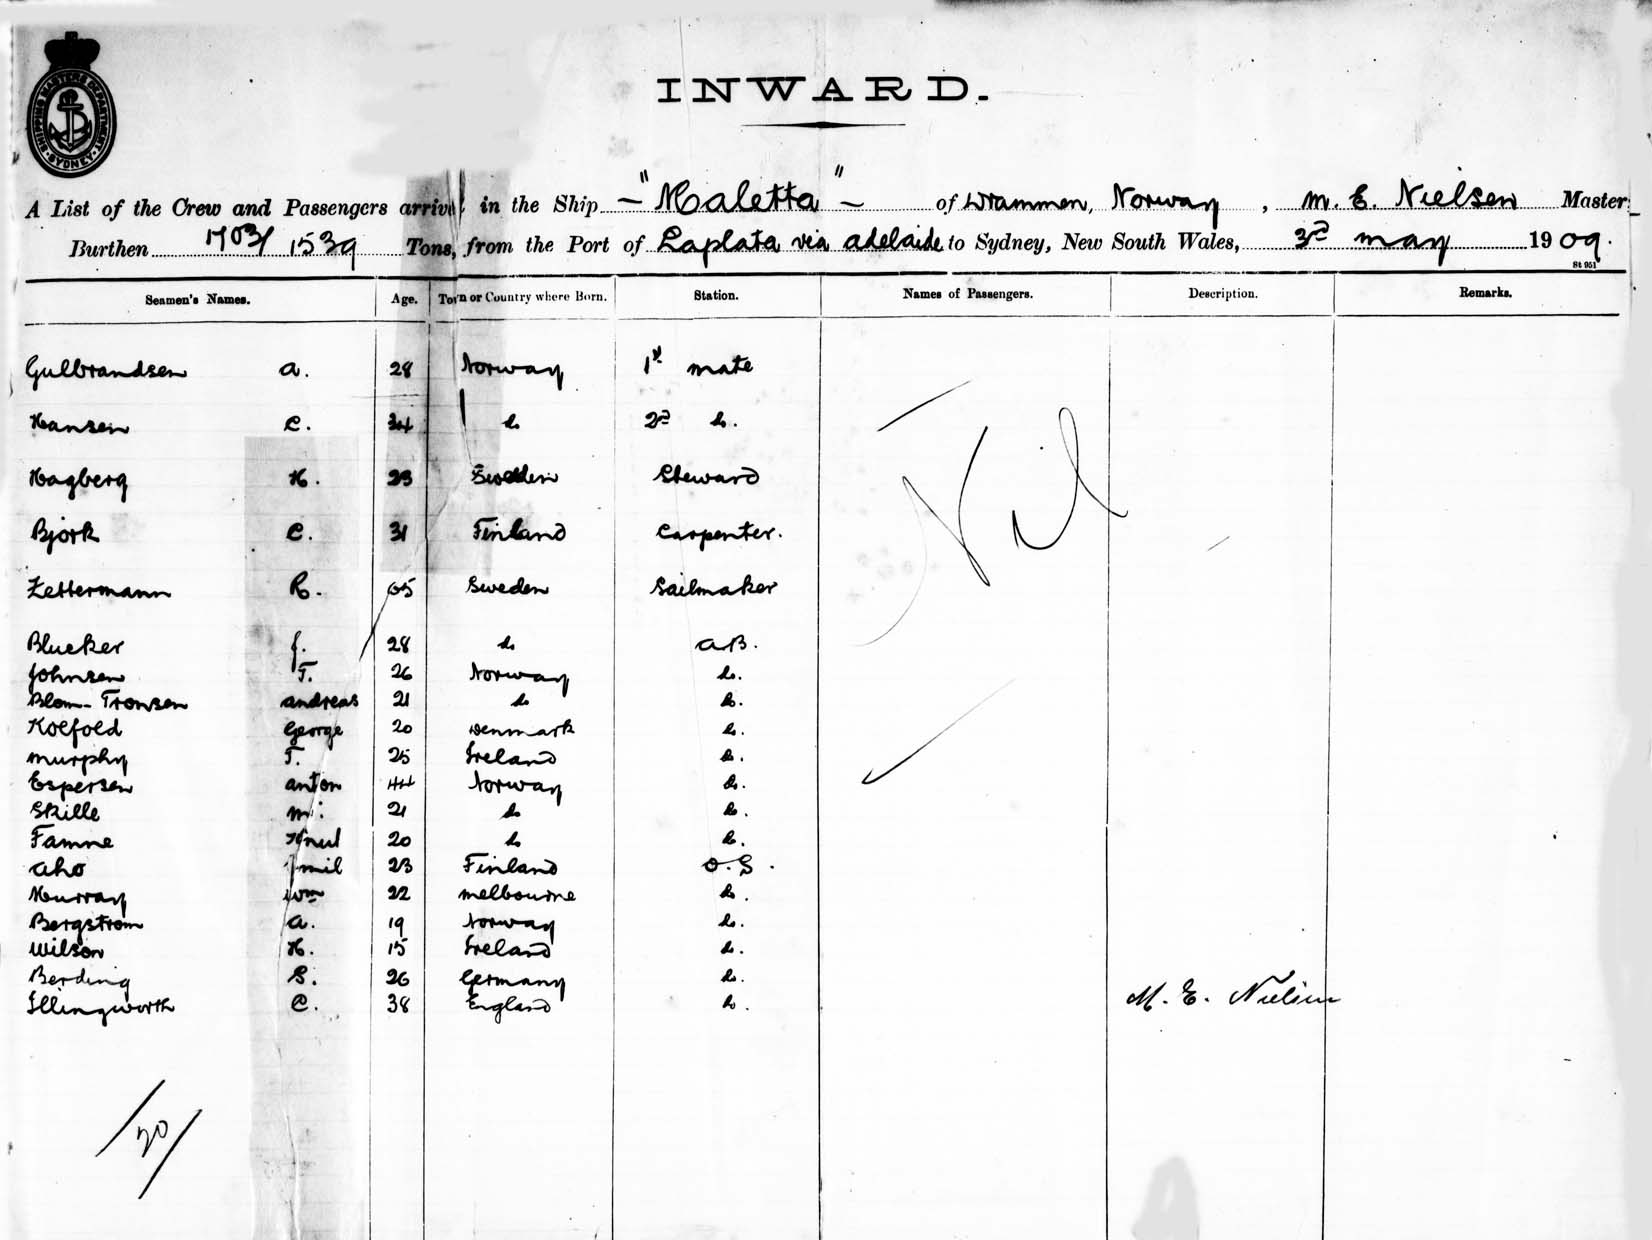 SHIPPING MASTERS DEPARTMENT
SYDNEY
INWARD.
A List of the Crew and Passengers arrived in the Ship "Maletta" of Drammen, Norway, M. E. Nielsen Master
Burthen 1703/1539 Tons, from the Port of Laplata via Adelaide to Sydney, New South Wales, 3rd May 1909.
St 951
Seamen's Names. Age. Town or Country where Born. Station. Names of Passengers. Description. Remarks.
Gulbrandsen A. 28 Norway 1st Mate
Hansen C. 34 do 2nd do.
Hagberg H. 23 Sweden Steward
Bjork C. 31 Finland Carpenter.
Nil
Zettermann R. 65 Sweden Sailmaker
Blucker J. 28 do A.B.
Johnsen T. 26 Norway do.
Blom-Tronsen Andreas 21 do do.
Koefoed George 20 Denmark do.
Murphy T. 25 Ireland do.
Espersen Anton 44 Norway do.
Skille M. 21 do do.
Famne Knut 20 do do.
Aho Emil 23 Finland O.S.
Murray Wm 22 Melbourne do.
Bergstrom A. 19 Norway do.
Wilson H. 15 Ireland do.
Berding S. 26 Germany do.
Illingworth C. 38 England do.
M. E. Nielsen
/20/